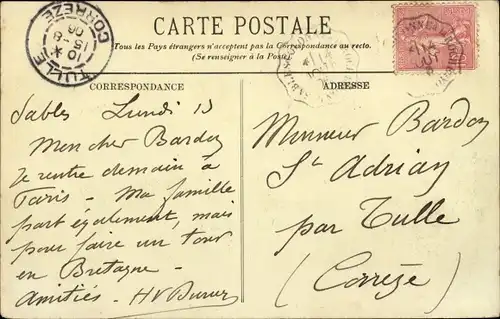 CARTE POSTALE
Tous les Pays étrangers n'acceptent pas la Correspondance au recto.
(Se renseigner à la Poste)
TULLE
CORRÈZE
CORRESPONDANCE
ADRESSE
Sables Lundi 13
Mon cher Bardon
Je rentre demain à
Paris - Ma famille
part également, mais
pour faire un tour
en Bretagne -
Amitiés - HV
Monsieur Bardon
St Adrian
par Tulle
(Corrèze)